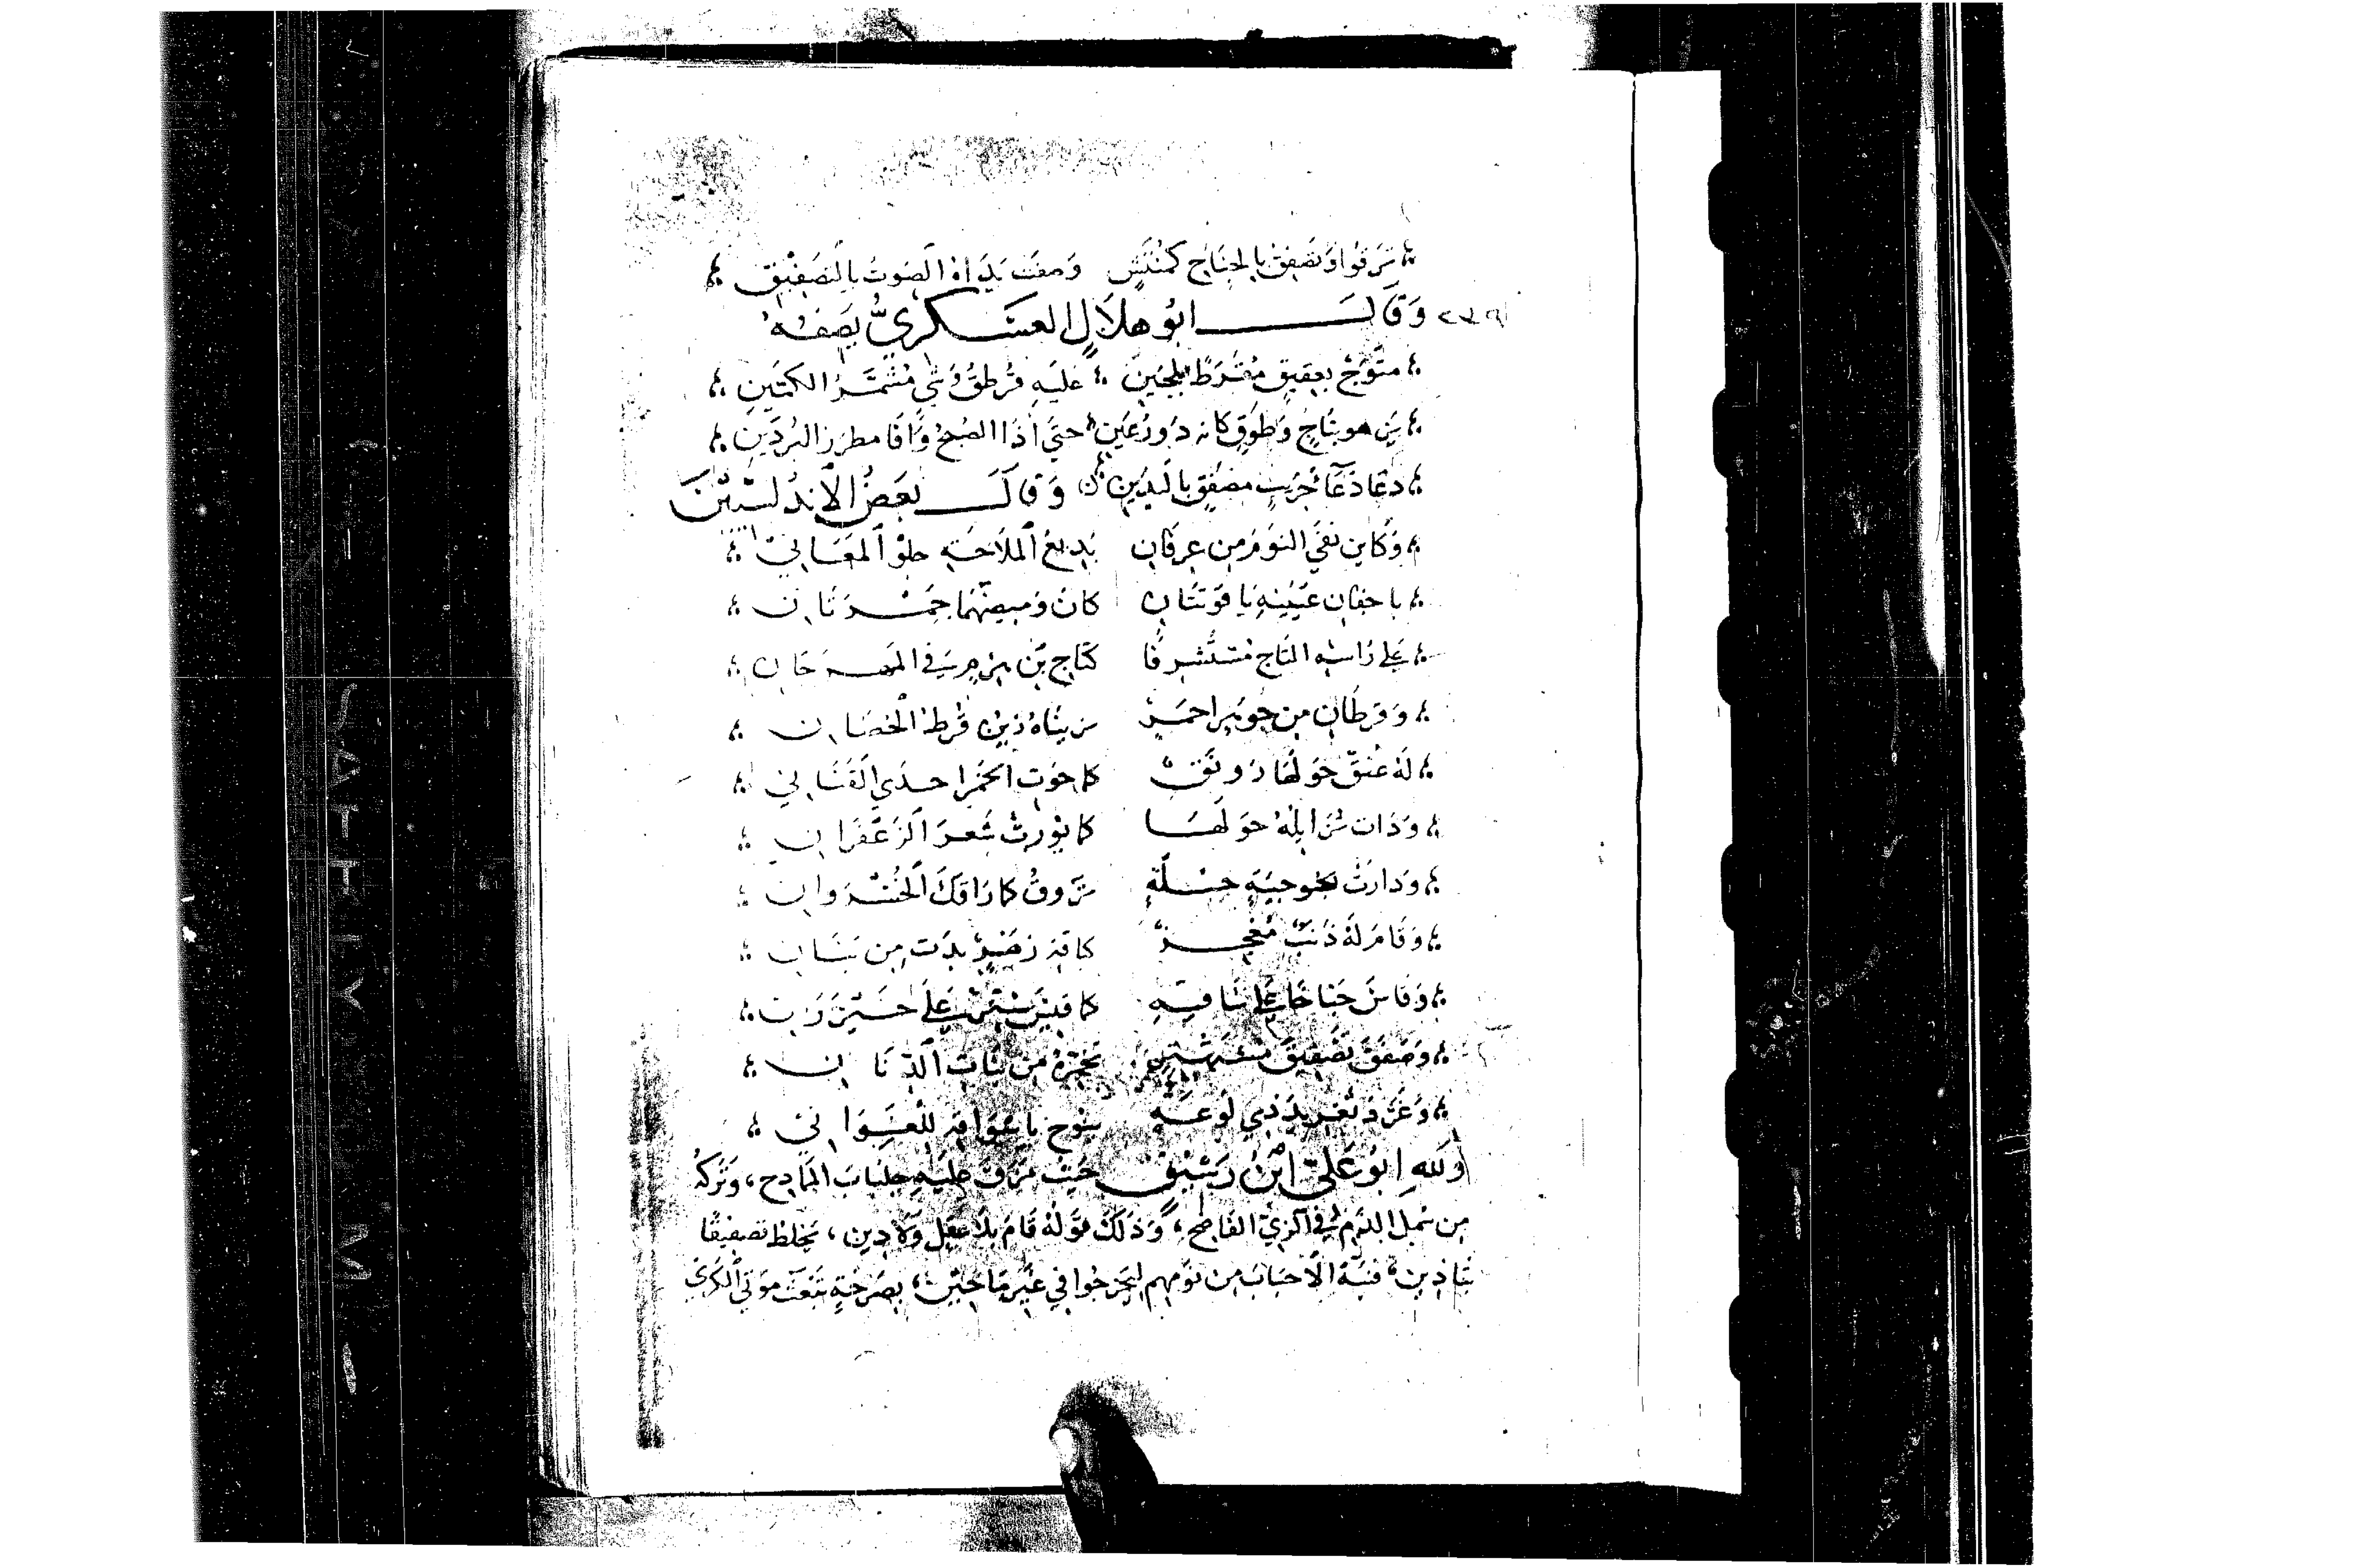 وَتَصْفِقُ بالجَنَاحِ كمُنْتَشٍ وَصَفَتْ يَدَاهُ الصَوتَ بِالتَصْفِيْقِ
٢٣٩ وَقَالَ ابُو هِلَالٍ العَسْكَرِيُّ يَصِفُهُ
مُتَوَّجٌ بعَقِيقٍ مُقَرَّطٌ بلُجَينِ عَليهِ قُرْطُقُ وَشْيٍ مُشَمَّرُ الكُمَّينِ
هو بتَاجٍ وَطَوْقٍ كانه ذو رُعَينِ حتى اذَا الصُبحُ وَافَا مطرز البُردَينِ
دعَا مصفقٍ باليَدَينِ وَقَالَ بَعضُ الأَندُلسِيّينَ
وَكَاين نَفَى النَومَ مِن عرفان بَدِيعُ المَلَاحَةِ حلو المَعَاني
باجفان عَيْنَيهِ يَاقوتتَان كانَ وَمِيضَهُمَا جَمْرَتَان
عَلى رَاسِهِ التَاج مُسْتَشْرِفًا كتَاجِ بَن هرمز في المَهرَجَان
وَقرطَان مِن جَوهَر احمَر يَزِينَاهُ زَيْنَ قُرط الحَصَان
لَهُ عُنُقٌ حَولَهَا رَونَقٌ كما حَوَتِ الخَمرَ احدَى القَنَاني
وَدَات بُرَايلُهُ حَولَهَا كما نوّرت شَعرَةُ الزَعفَرَان
وَدارَت بجُوجئِهِ حُلَّةٌ تَرُوقُ كما رَاقَكَ الخُسْرَوان
وَقَامَ لَهُ ذَنَبٌ مُعْجِبٌ كباقة زَهْرٍ بدَت مِن بَنَان
وَقَاسَ جَنَاحًا عَلى سَاقِهِ كما قِيسَ سِتْرٌ عَلَى خَيْزرَان
وَصَفَقَ تَصْفِيقَ مُسْتَهْتِرٍ مِن بَنَاتِ الدِنَان
وَغَرَّدَ تَغْرِيدَ ذِي لَوعَةٍ يَبُوح باشوَاقه للغَوَاني
وَللهِ ابُو عَليّ ابْنُ رَشِيْقٍ حَيثُ عَلَيهِ جلبَابَ المَادح، وَتَركهُ
مِن الذم في الزِيّ الفَاضح، وَذَلكَ قَولُهُ قَامَ بلَا عَقلٍ وَلَا دِينِ، يَخلط تصفِيقًا
بتَاذِينِ، فَنَبَّهَ الأَحبَابَ مِن نَومِهِم ليَخرجُوا في غَير مَا حِينِ، بصَرخَةٍ تَبْعَثُ مَوتَى الكَرَى